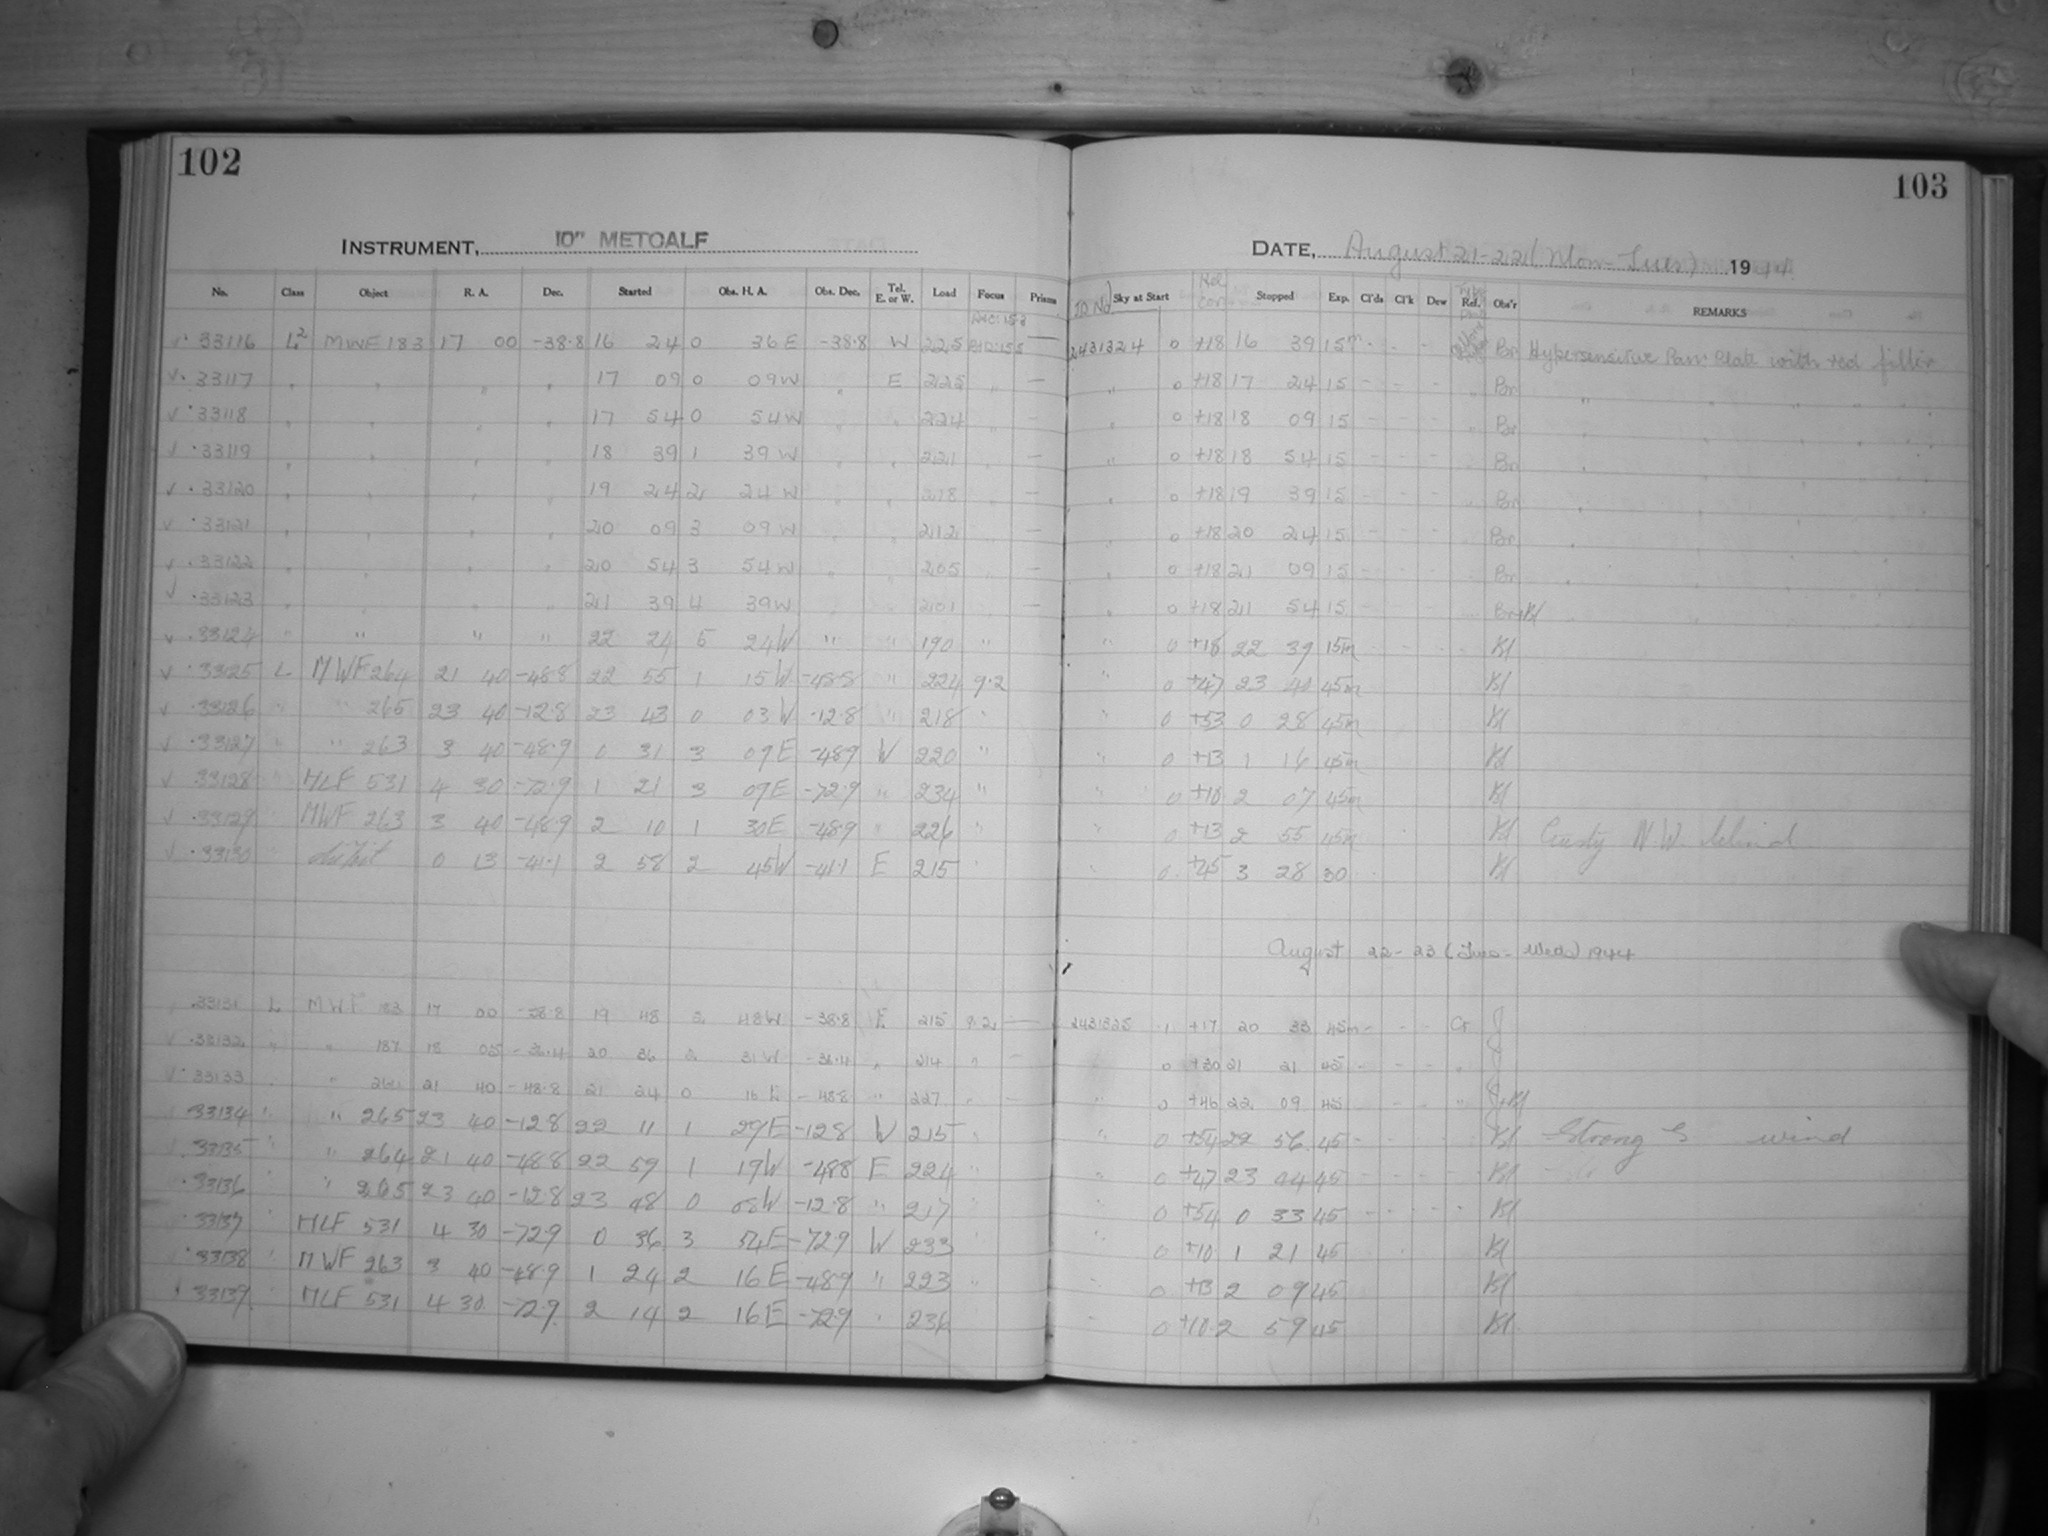 102
INSTRUMENT, 10" METCALF
No. Class Object R. A. Dec. Started Obs. H. A. Obs. Dec. Tel. E. or W. Load Focus Prisms
33116 L² MWF 183 17 00 -38.8 16 24 0 36 E -38.8 W 225 —
33117 " " " " 17 09 0 09 W " E 225 " —
33118 " " " " 17 54 0 54 W " " 224 " —
33119 " " " " 18 39 1 39 W " " 221 " —
33120 " " " " 19 24 2 24 W " " 218 " —
33121 " " " " 20 09 3 09 W " " 212 " —
33122 " " " " 20 54 3 54 W " " 205 " —
33123 " " " " 21 39 4 39 W " " 201 " —
33124 " " " " 22 24 5 24 W " " 190 "
33125 L MWF 264 21 40 -48.8 22 55 1 15 W -48.8 " 224 9.2
33126 " " 265 23 40 -12.8 23 43 0 03 W -12.8 " 218 "
33127 " " 263 3 40 -48.9 0 31 3 09 E -48.9 W 220 "
33128 " MLF 531 4 30 -72.9 1 21 3 07 E -72.9 " 234 "
33129 " MWF 263 3 40 -48.9 2 10 1 30 E -48.9 " 226 "
33130 " 0 13 -41.1 2 58 2 45 W -41.1 E 215 "
33131 L MWF 183 17 00 -38.8 19 48 2 48 W -38.8 E 215 9.2 —
33132 " " 187 18 05 -36.4 20 36 2 31 W -36.4 " 214 " —
33133 " " 264 21 40 -48.8 21 24 0 16 E -48.8 " 227 " —
33134 " " 265 23 40 -12.8 22 11 1 29 E -12.8 W 215 "
33135 " " 264 21 40 -48.8 22 59 1 19 W -48.8 E 224 "
33136 " " 265 23 40 -12.8 23 48 0 08 W -12.8 " 217 "
33137 " MLF 531 4 30 -72.9 0 36 3 54 E -72.9 W 233 "
33138 " MWF 263 3 40 -48.9 1 24 2 16 E -48.9 " 223 "
33139 " MLF 531 4 30 -72.9 2 14 2 16 E -72.9 " 236
103
DATE, August 21-22 (Mon-Tues) 1944
J.D. No. Sky at Start Stopped Exp. Cl'ds Cl'k Dew Ref. Obs'r REMARKS
2431324 0 +18 16 39 15m - - - Br Hypersensitive Pan Plate with red filter
" 0 +18 17 24 15 - - - " Br " " " " "
" 0 +18 18 09 15 - - - " Br "
" 0 +18 18 54 15 - - - " Br "
" 0 +18 19 39 15 - - - " Br "
" 0 +18 20 24 15 - - - " Br "
" 0 +18 21 09 15 - - - " Br "
" 0 +18 21 54 15 - - - " Br+Bl "
" 0 +18 22 39 15m - - - Bl
" 0 +47 23 40 45m Bl
" 0 +53 0 28 45m Bl
" 0 +13 1 16 45m Bl
" 0 +10 2 07 45m Bl
" 0 +13 2 55 45m Bl Gusty N.W. Wind
" 0 +45 3 28 30 Bl
August 22-23 (Tues-Wed) 1944
2431325 1 +17 20 33 45m - - - Cr J
" 0 +30 21 21 45 - - - " J
" 0 +46 22 09 45 - - - " J+Bl
" 0 +54 22 56 45 - Bl Strong S wind
" 0 +47 23 44 45 - Bl
" 0 +54 0 33 45 - Bl
" 0 +10 1 21 45 Bl
" 0 +13 2 09 45 Bl
" 0 +10 2 59 45 Bl